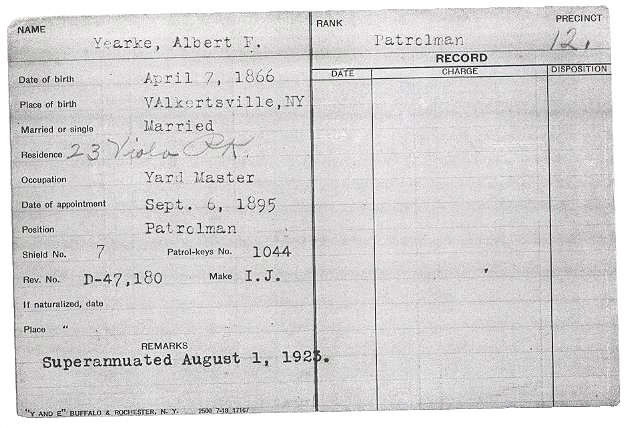 NAME
Yearke, Albert F.
RANK
Patrolman
PRECINCT
12.
RECORD
DATE CHARGE DISPOSITION
Date of birth April 7, 1866
Place of birth VAlkertsville,NY
Married or single Married
Residence 23 Viola PK.
Occupation Yard Master
Date of appointment Sept. 6, 1895
Position Patrolman
Shield No. 7 Patrol-keys No. 1044
Rev. No. D-47,180 Make I.J.
If naturalized, date
Place "
REMARKS
Superannuated August 1, 1923.
"Y AND E" BUFFALO & ROCHESTER, N. Y. 2500 7-18 17167